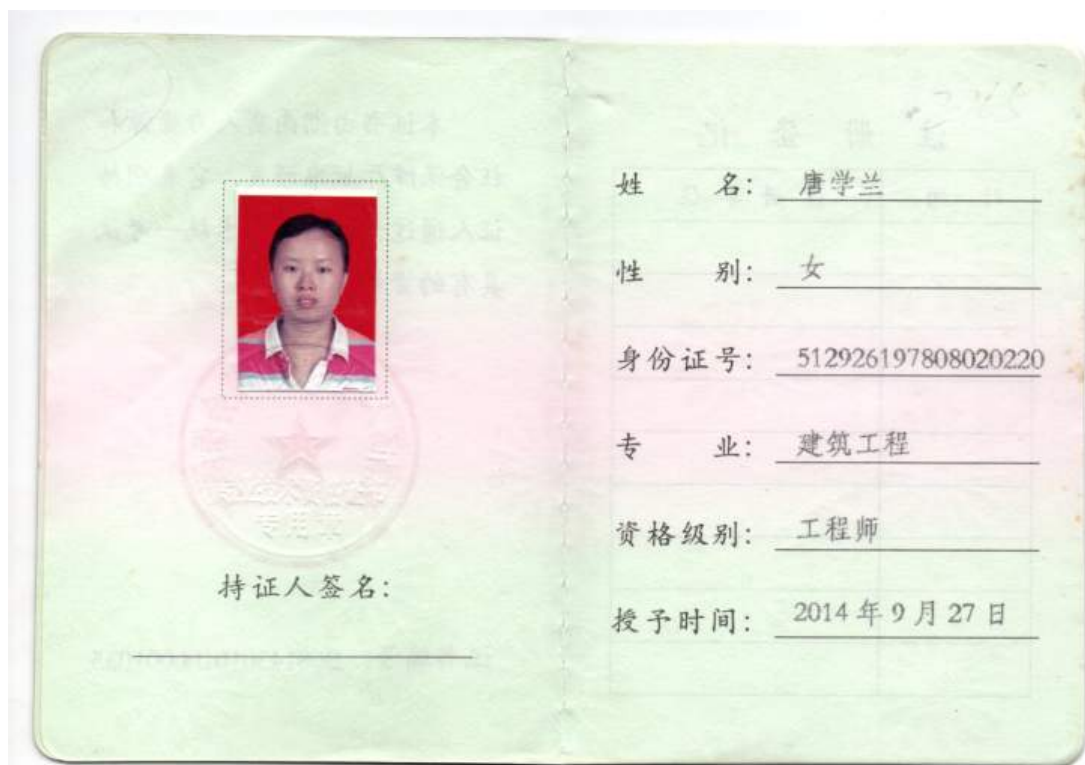 持证人签名:
姓 名: 唐学兰
性 别: 女
身份证号: 512926197808020220
专 业: 建筑工程
资格级别: 工程师
授予时间: 2014 年 9 月 27 日